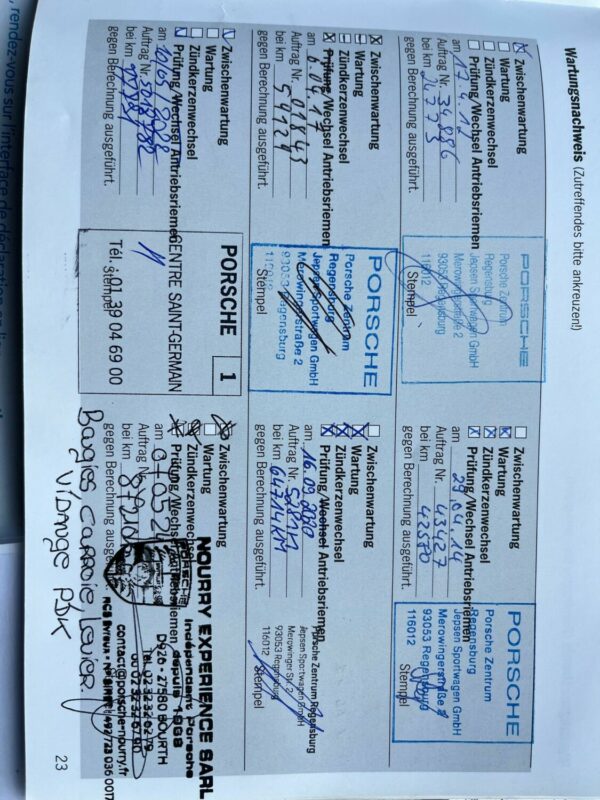 Wartungsnachweis (Zutreffendes bitte ankreuzen!)
Zwischenwartung
Wartung
Zündkerzenwechsel
Prüfung/Wechsel Antriebsriemen
am 17.4.12
Auftrag Nr. 34886
bei km 24773
gegen Berechnung ausgeführt.
PORSCHE
Porsche Zentrum
Regensburg
Jepsen Sportwagen GmbH
Merowingerstraße 2
93053 Regensburg
116012
Stempel
Zwischenwartung
Wartung
Zündkerzenwechsel
Prüfung/Wechsel Antriebsriemen
am 29.04.14
Auftrag Nr. 43427
bei km 42570
gegen Berechnung ausgeführt.
PORSCHE
Porsche Zentrum
Regensburg
Jepsen Sportwagen GmbH
Merowingerstraße 2
93053 Regensburg
116012
Stempel
Zwischenwartung
Wartung
Zündkerzenwechsel
Prüfung/Wechsel Antriebsriemen
am 6.04.17
Auftrag Nr. 01843
bei km 54124
gegen Berechnung ausgeführt.
PORSCHE
Porsche Zentrum
Regensburg
Jepsen Sportwagen GmbH
Merowingerstraße 2
93053 Regensburg
116012
Stempel
Zwischenwartung
Wartung
Zündkerzenwechsel
Prüfung/Wechsel Antriebsriemen
am 16.09.2020
Auftrag Nr.
bei km 64714 KM
gegen Berechnung ausgeführt.
Porsche Zentrum Regensburg
Jepsen Sportwagen GmbH
Merowinger Str. 2
93053 Regensburg
116012
Stempel
Zwischenwartung
Wartung
Zündkerzenwechsel
Prüfung/Wechsel Antriebsriemen
am
Auftrag Nr.
bei km
gegen Berechnung ausgeführt.
PORSCHE 1
CENTRE SAINT-GERMAIN
Tél. : 01 39 04 69 00
Stempel
Zwischenwartung
Wartung
Zündkerzenwechsel
Prüfung/Wechsel Antriebsriemen
am
Auftrag Nr.
bei km
gegen Berechnung ausgeführt.
NOURRY EXPERIENCE SARL
Indépendant Porsche
depuis 1968
PORSCHE
D926 - 27580 BOURTH
contact@porsche-nourry.fr
Bougies Courroie
Vidange PDK
23
rendez-vous sur l'interface de déclaration en